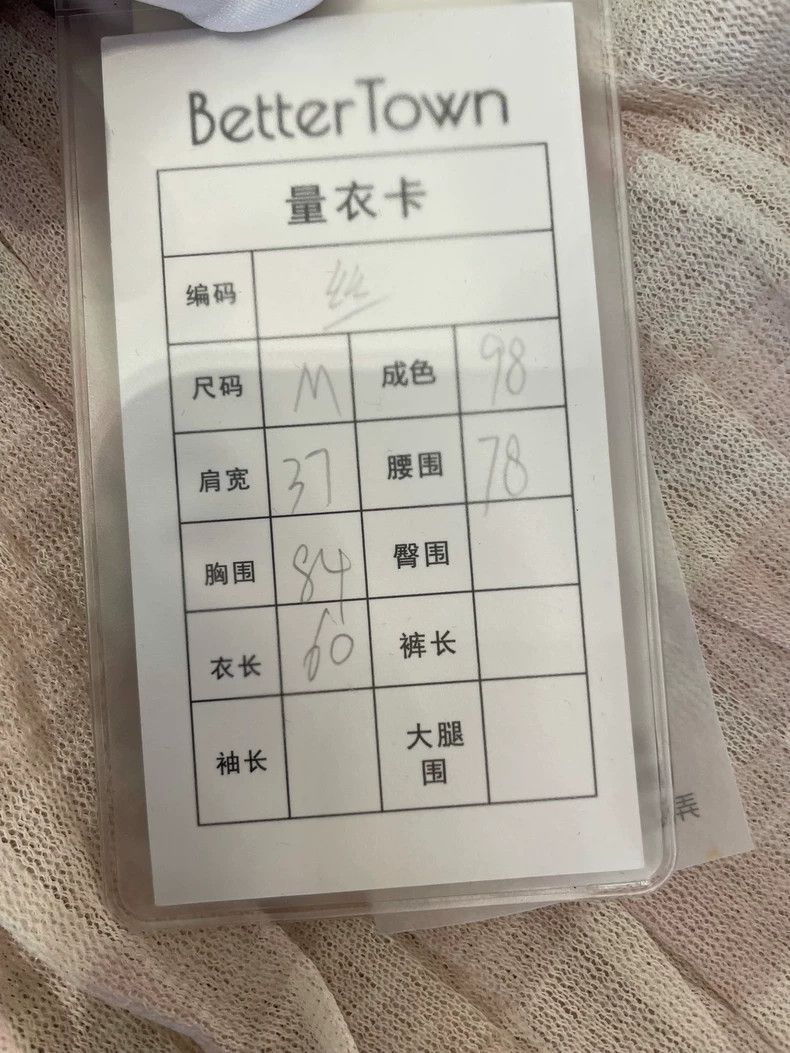 BetterTown
量衣卡
编码 丝
尺码 M 成色 98
肩宽 37 腰围 78
胸围 84 臀围
衣长 60 裤长
袖长 大腿围
弄